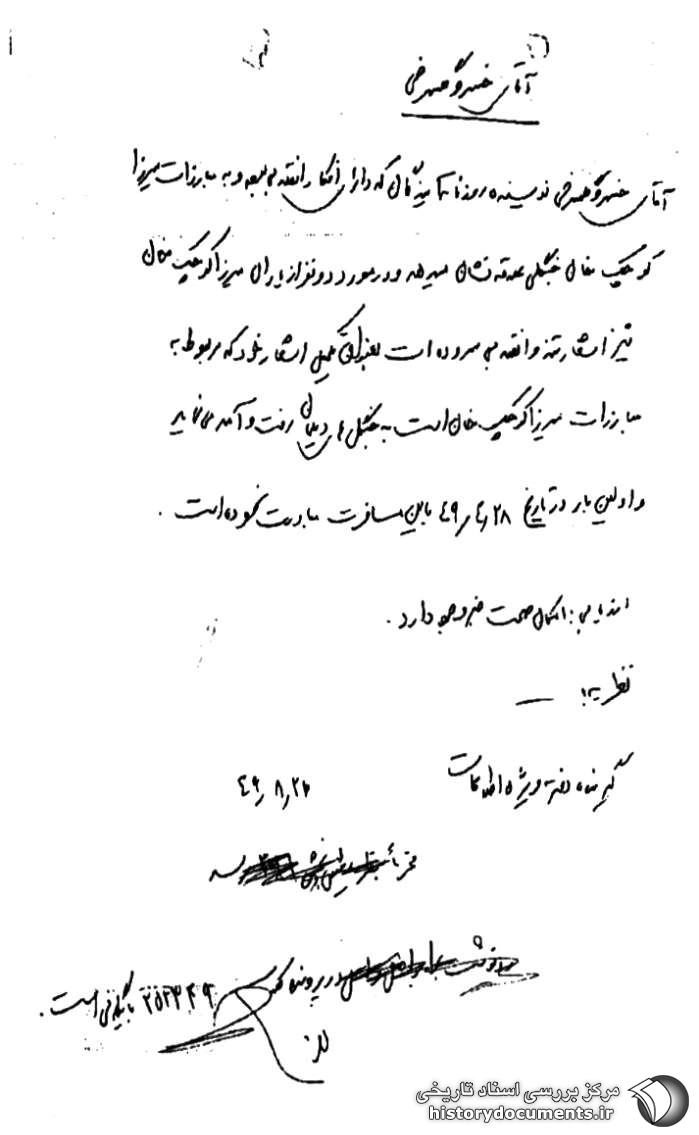 آقای خسرو گلسرخی
آقای خسرو گلسرخی نویسنده روزنامه آیندگان که دارای افکار انقلابی بوده و به مبارزات میرزا
کوچک خان جنگلی علاقه نشان میدهد و در مورد دو نفر از یاران میرزا کوچک خان
نیز اشعار تند و انقلابی سروده است بعنوان تکمیل اشعار خود که مربوط به
مبارزات میرزا کوچک خان است به جنگل های رفت و آمد می نماید
و اولین بار در تاریخ ۴۹٫۴٫۲۸ باین مسافرت مبادرت نموده است.
ارزیابی: امکان صحت خبر وجود دارد.
نظریه: —
گیرنده دفتر ویژه اطلاعات
۴۹٫۸٫
محترماً
رونوشت در پرونده ۲۵۲۳۴۹ بایگانی است.
مرکز بررسی اسناد تاریخی
historydocuments.ir